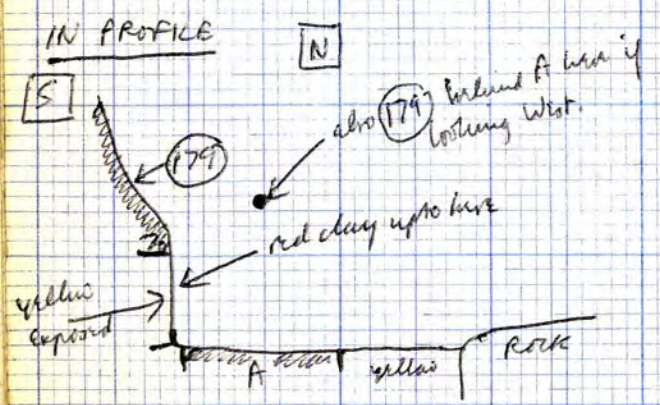 IN PROFILE
N
S
also 179 behind A here if
looking West.
179
red clay up to here
yellow
exposed
A
yellow
ROCK